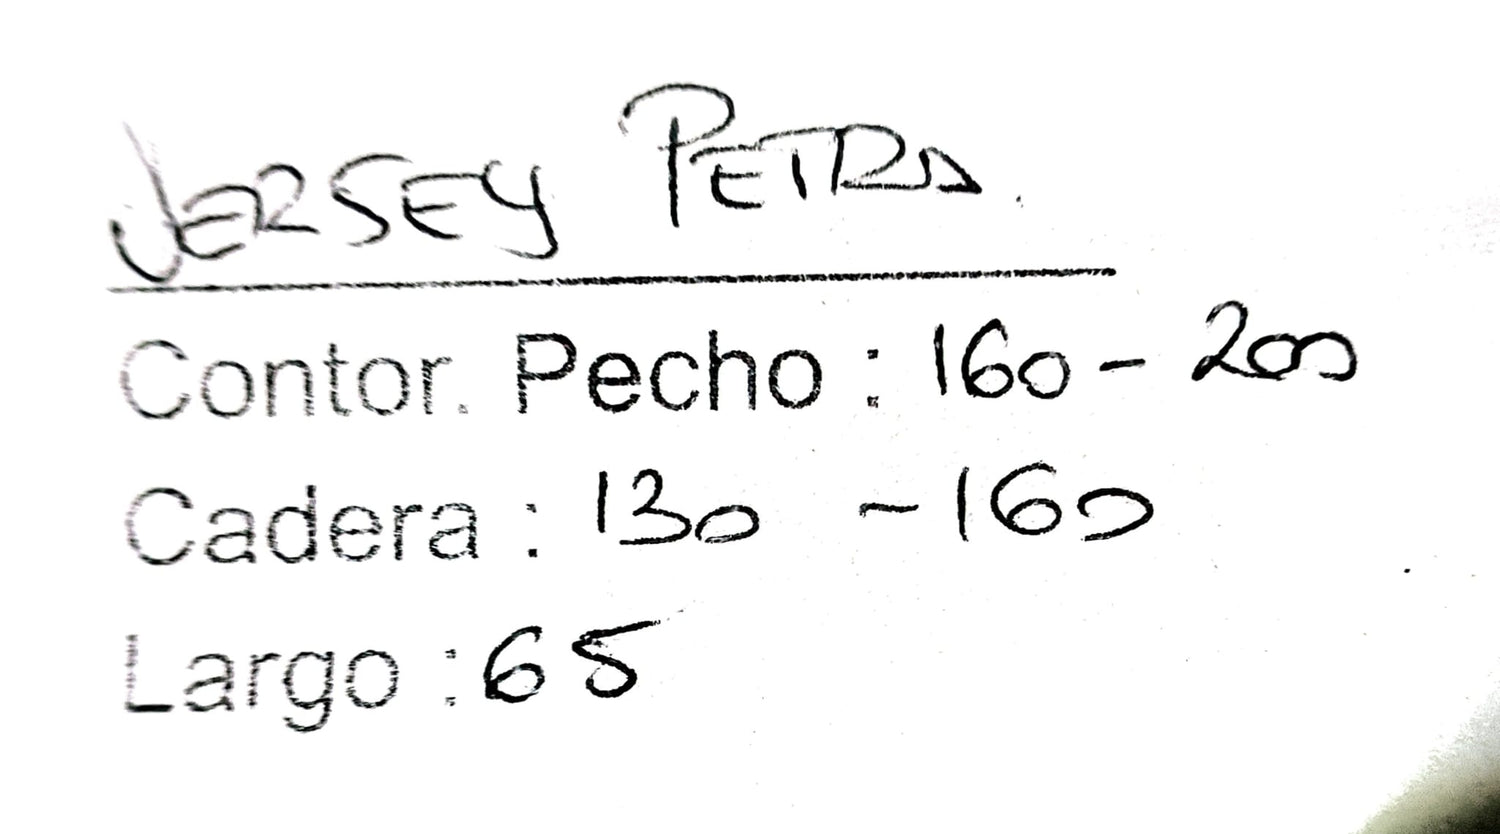 JERSEY PETRA.
Contor. Pecho : 160 - 200
Cadera : 130 - 160
Largo : 65